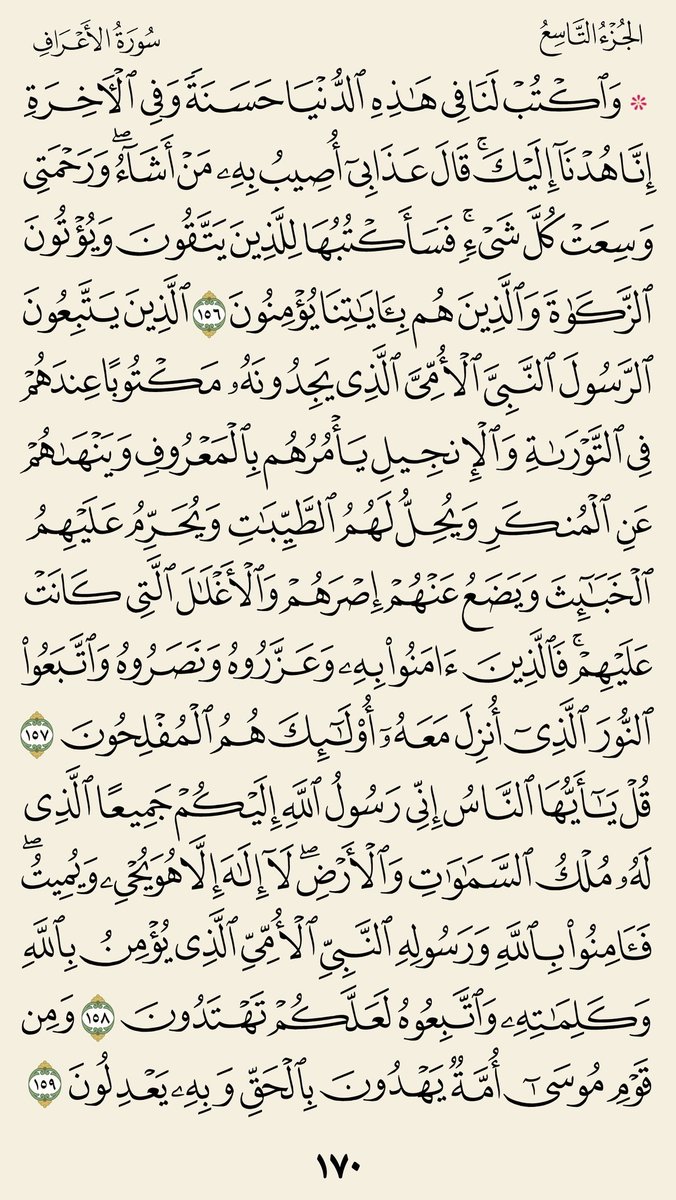 الجُزْءُ التَّاسِعُ
سُورَةُ الأَعْرَافِ
۞ وَٱكْتُبْ لَنَا فِى هَٰذِهِ ٱلدُّنْيَا حَسَنَةً وَفِى ٱلْأَخِرَةِ
إِنَّا هُدْنَآ إِلَيْكَ ۚ قَالَ عَذَابِىٓ أُصِيبُ بِهِۦ مَنْ أَشَآءُ ۖ وَرَحْمَتِى
وَسِعَتْ كُلَّ شَىْءٍ ۚ فَسَأَكْتُبُهَا لِلَّذِينَ يَتَّقُونَ وَيُؤْتُونَ
ٱلزَّكَوٰةَ وَٱلَّذِينَ هُم بِـَٔايَٰتِنَا يُؤْمِنُونَ ١٥٦ ٱلَّذِينَ يَتَّبِعُونَ
ٱلرَّسُولَ ٱلنَّبِىَّ ٱلْأُمِّىَّ ٱلَّذِى يَجِدُونَهُۥ مَكْتُوبًا عِندَهُمْ
فِى ٱلتَّوْرَىٰةِ وَٱلْإِنجِيلِ يَأْمُرُهُم بِٱلْمَعْرُوفِ وَيَنْهَىٰهُمْ
عَنِ ٱلْمُنكَرِ وَيُحِلُّ لَهُمُ ٱلطَّيِّبَٰتِ وَيُحَرِّمُ عَلَيْهِمُ
ٱلْخَبَٰٓئِثَ وَيَضَعُ عَنْهُمْ إِصْرَهُمْ وَٱلْأَغْلَٰلَ ٱلَّتِى كَانَتْ
عَلَيْهِمْ ۚ فَٱلَّذِينَ ءَامَنُوا۟ بِهِۦ وَعَزَّرُوهُ وَنَصَرُوهُ وَٱتَّبَعُوا۟
ٱلنُّورَ ٱلَّذِىٓ أُنزِلَ مَعَهُۥٓ أُو۟لَٰٓئِكَ هُمُ ٱلْمُفْلِحُونَ ١٥٧
قُلْ يَٰٓأَيُّهَا ٱلنَّاسُ إِنِّى رَسُولُ ٱللَّهِ إِلَيْكُمْ جَمِيعًا ٱلَّذِى
لَهُۥ مُلْكُ ٱلسَّمَٰوَٰتِ وَٱلْأَرْضِ ۖ لَآ إِلَٰهَ إِلَّا هُوَ يُحْىِۦ وَيُمِيتُ ۖ
فَـَٔامِنُوا۟ بِٱللَّهِ وَرَسُولِهِ ٱلنَّبِىِّ ٱلْأُمِّىِّ ٱلَّذِى يُؤْمِنُ بِٱللَّهِ
وَكَلِمَٰتِهِۦ وَٱتَّبِعُوهُ لَعَلَّكُمْ تَهْتَدُونَ ١٥٨ وَمِن
قَوْمِ مُوسَىٰٓ أُمَّةٌ يَهْدُونَ بِٱلْحَقِّ وَبِهِۦ يَعْدِلُونَ ١٥٩
١٧٠